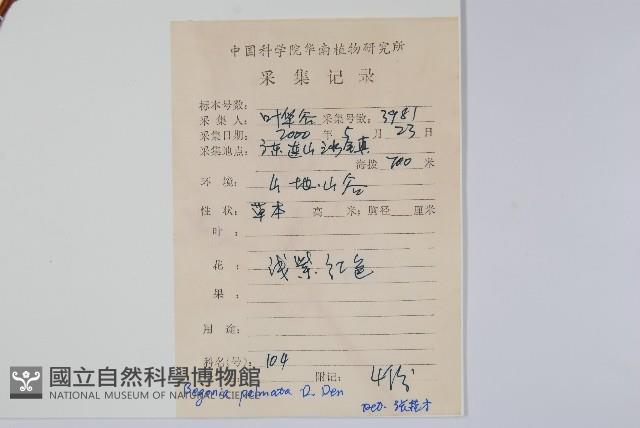 中国科学院华南植物研究所
采集记录
标本号数:
采集人: 叶华谷 采集号数: 3981
采集日期: 2000 年 5 月 23 日
采集地点: 广东连山
海拔 700 米
环境: 山地.山谷
性状: 草本 高 米; 胸径 厘米
叶:
花: 浅紫.红色
果:
用途:
科名(号): 104
附记: 4份
國立自然科學博物館
NATIONAL MUSEUM OF NATURAL SCIENCE
Begonia palmata D. Don
Det.